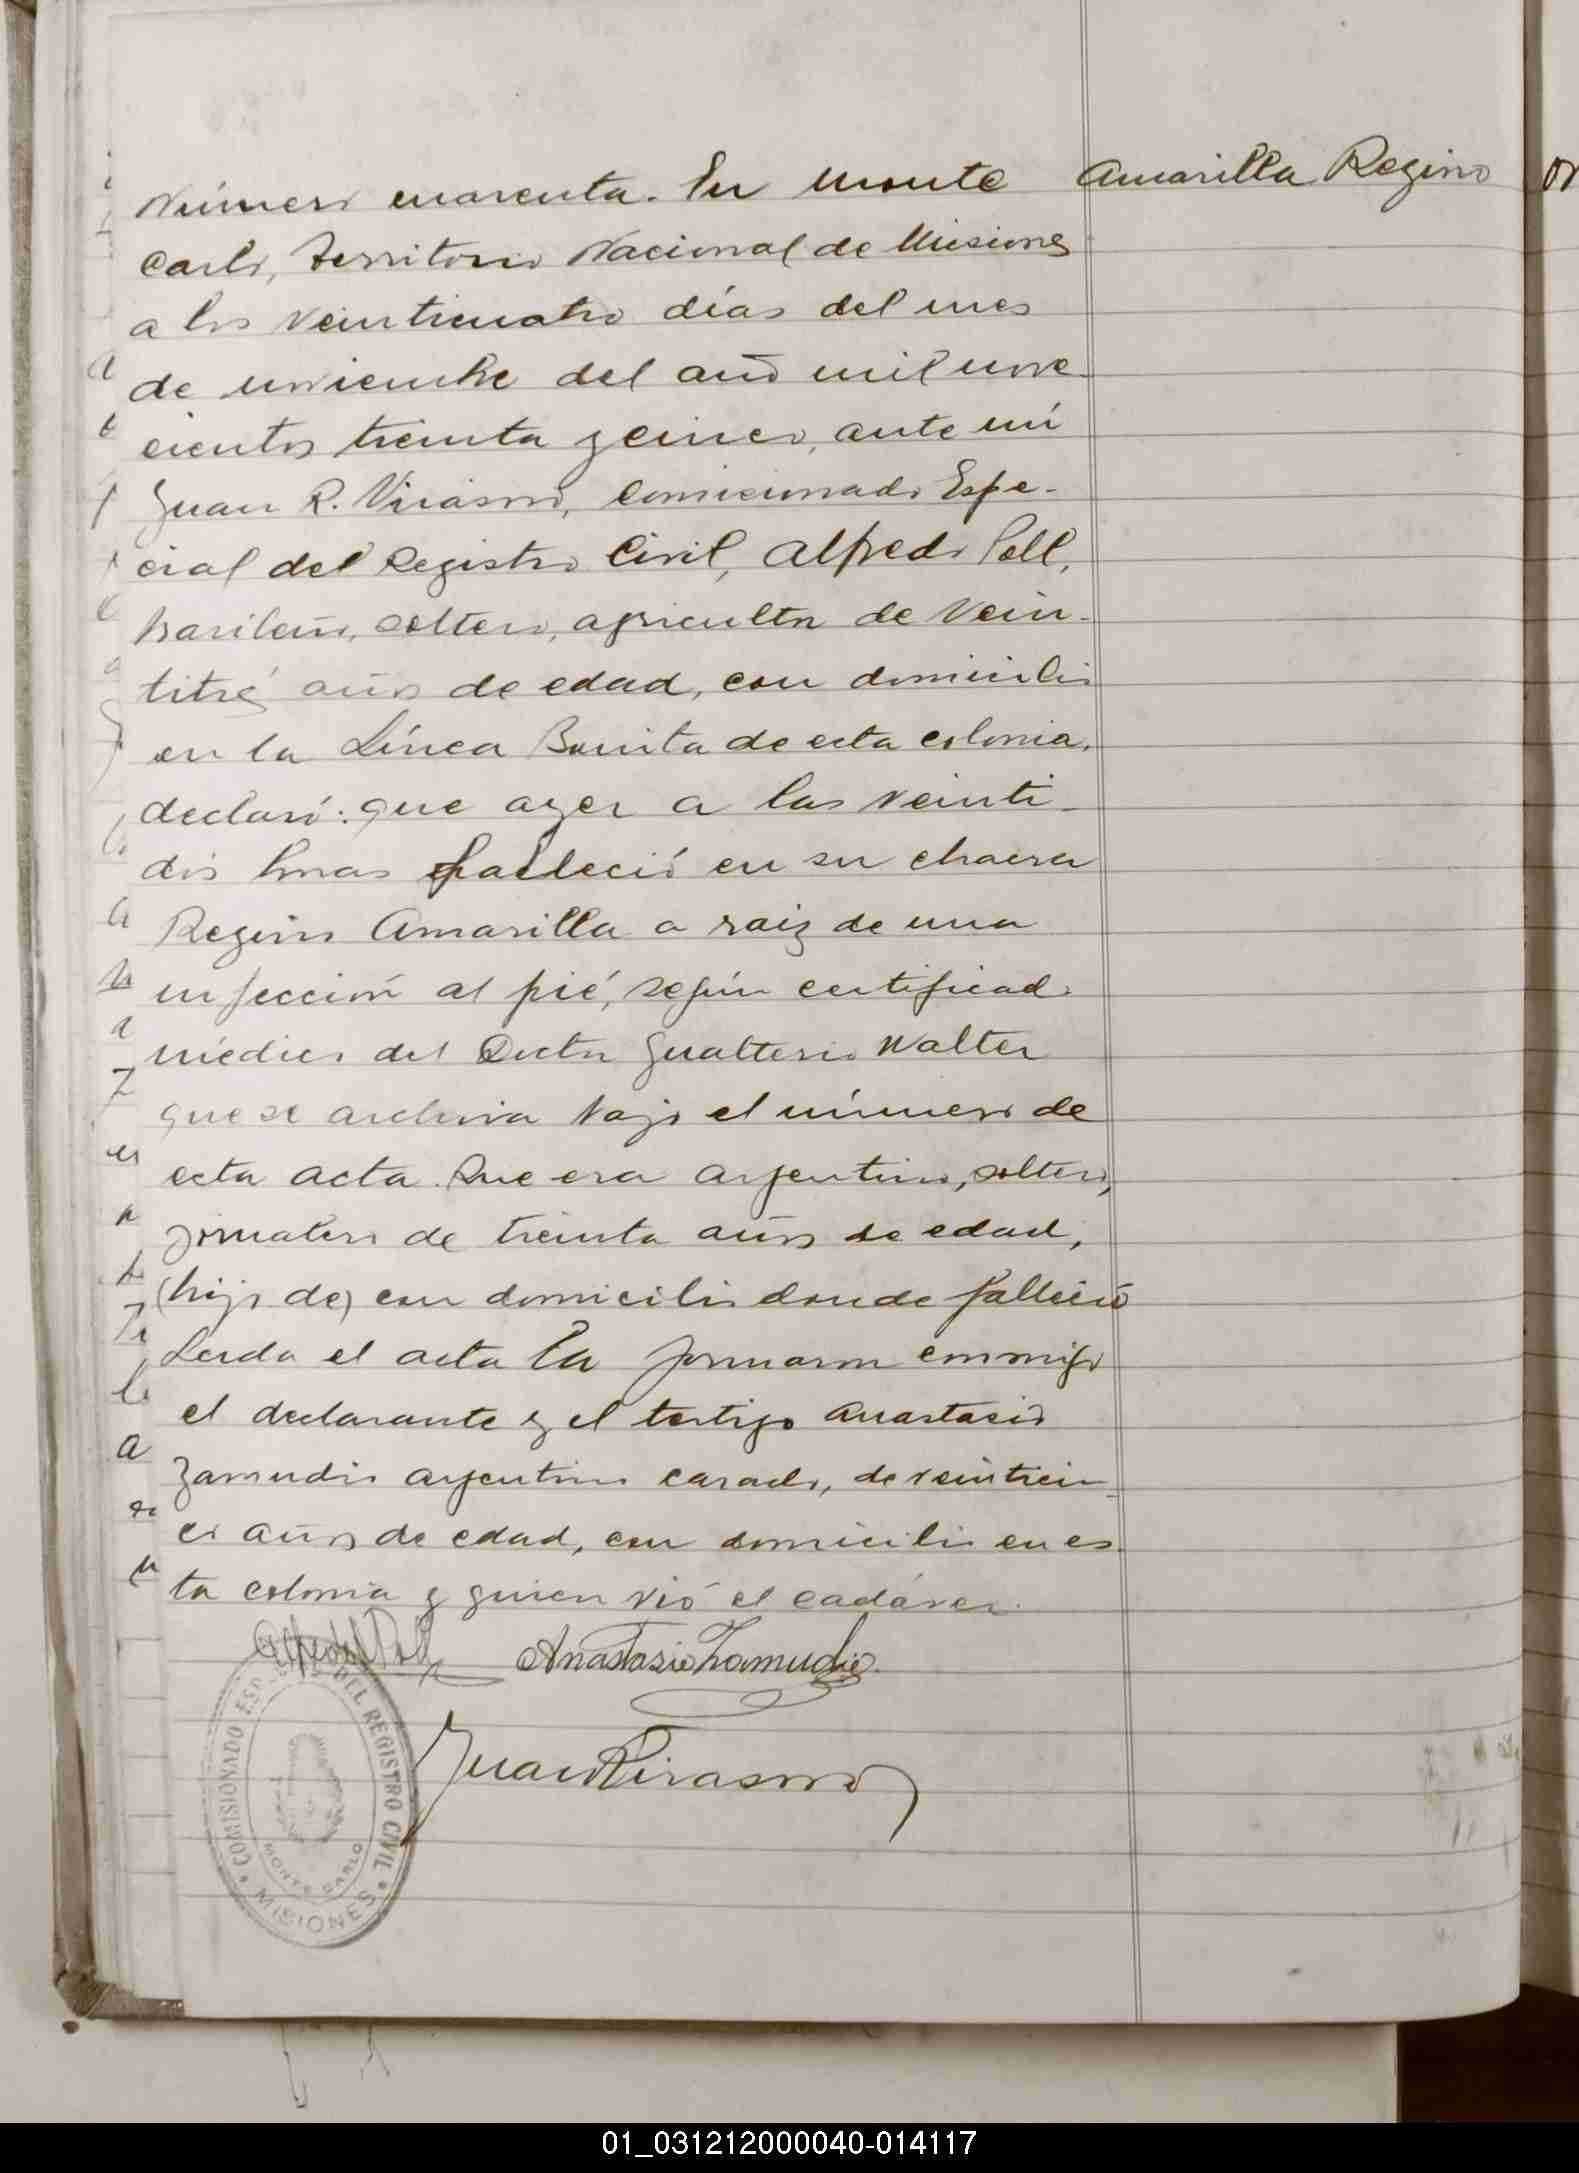 Número cuarenta. En Monte
Amarilla Regino
Carlo, Territorio Nacional de Misiones
a los veinticuatro días del mes
de noviembre del año mil nove-
cientos treinta y cinco, ante mí
Juan R. Virasoro, Comisionado Espe-
cial del Registro Civil, Alfredo Poll,
brasileño, soltero, agricultor de vein-
titrés años de edad, con domicilio
en la Línea Bonita de esta colonia,
declaró: que ayer a las veinti-
dós horas falleció en su chacra
Regino Amarilla a raiz de una
infección al pié, según certificado
médico del Doctor Gualterio Walter
que se archiva bajo el número de
esta acta. Que era argentino, soltero,
jornalero de treinta años de edad,
(hijo de) con domicilio donde falleció
Leida el acta la firmaron conmigo
el declarante y el testigo Anastasio
Zamudio argentino casado, de veinticin-
co años de edad, con domicilio en es-
ta colonia y quien vió el cadáver.
Alfredo Poll Anastasio Zamudio
Juan R Virasoro
COMISIONADO ESPECIAL DEL REGISTRO CIVIL
MONTE CARLO
MISIONES
01_031212000040-014117